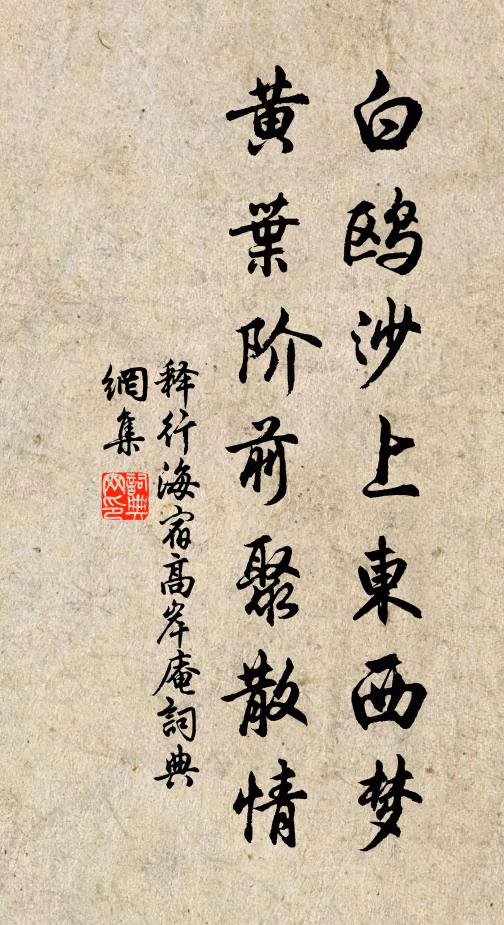 白鸥沙上東西梦
黄葉阶前聚散情
释行海宿高岸庵詞典
網集
詞典
网印